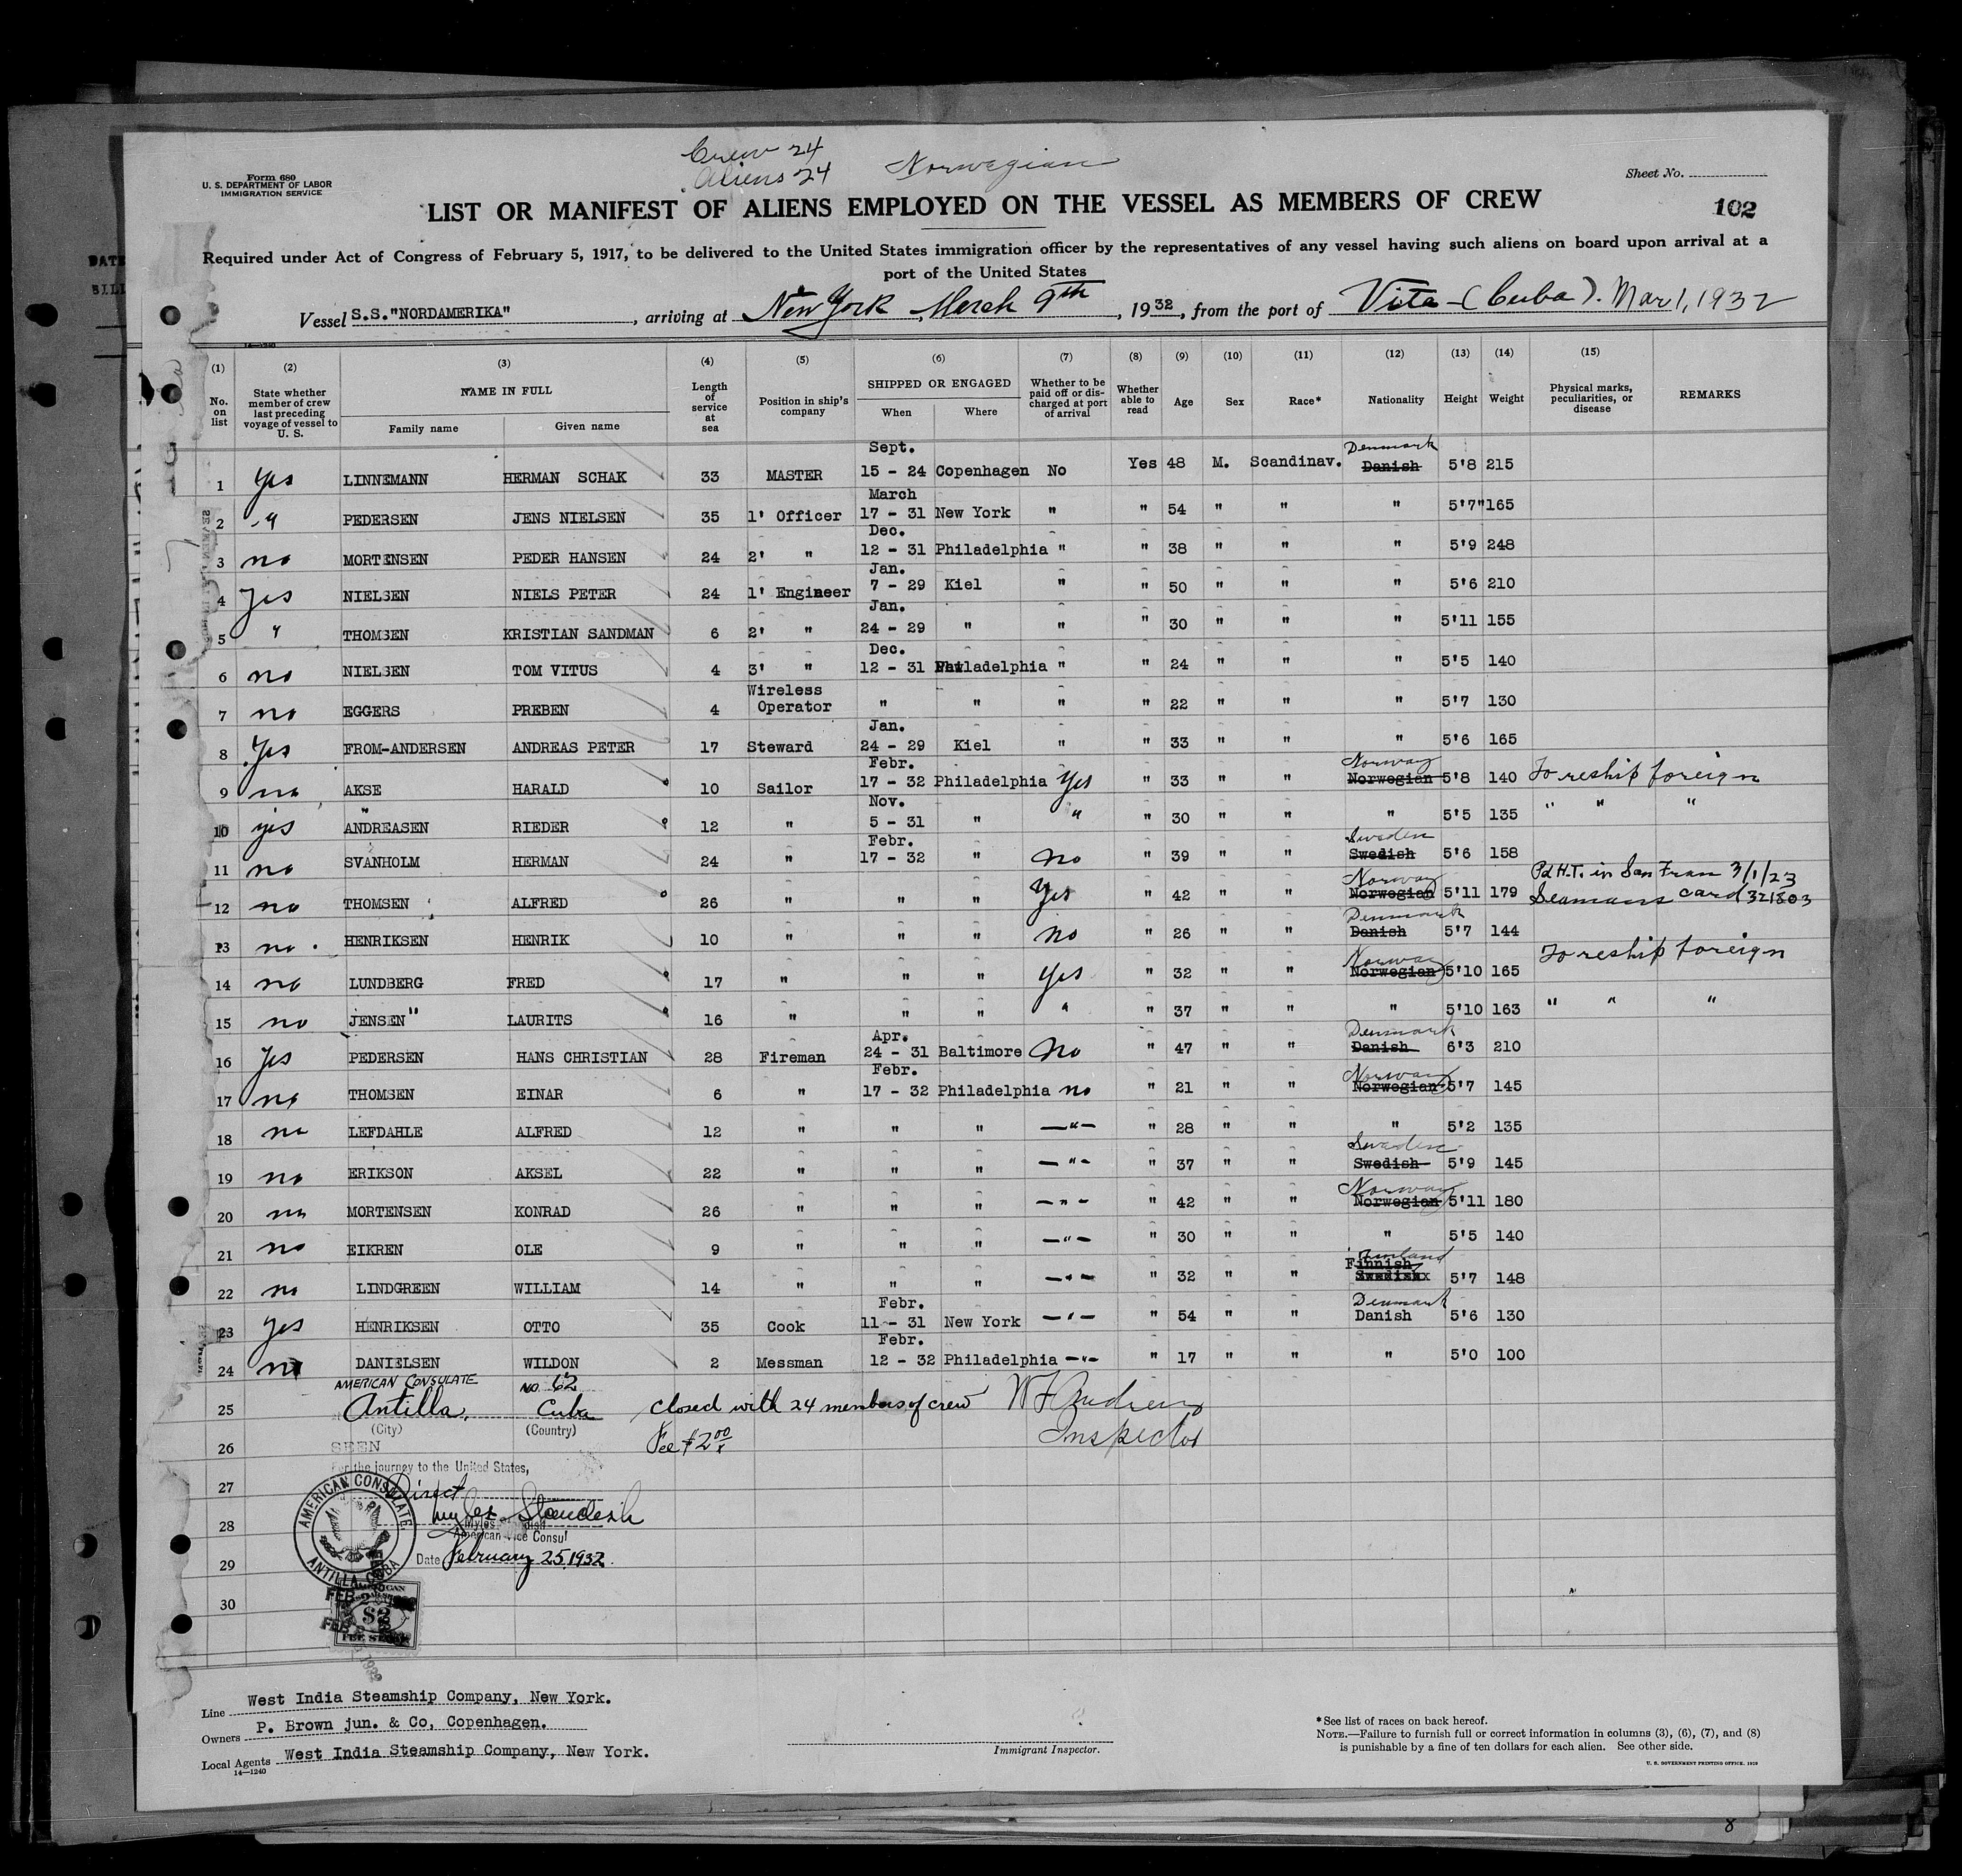 Crew 24
Aliens 24
Norwegian
Form 680
U. S. DEPARTMENT OF LABOR
IMMIGRATION SERVICE
Sheet No.
LIST OR MANIFEST OF ALIENS EMPLOYED ON THE VESSEL AS MEMBERS OF CREW
102
Required under Act of Congress of February 5, 1917, to be delivered to the United States immigration officer by the representatives of any vessel having such aliens on board upon arrival at a
port of the United States
Vessel S.S."NORDAMERIKA", arriving at New York, March 9th, 1932, from the port of Vita - (Cuba). Mar 1, 1932
14—1240
(1) (2) (3) (4) (5) (6) (7) (8) (9) (10) (11) (12) (13) (14) (15)
No. on list
State whether member of crew last preceding voyage of vessel to U. S.
NAME IN FULL
Family name
Given name
Length of service at sea
Position in ship's company
SHIPPED OR ENGAGED
When
Where
Whether to be paid off or discharged at port of arrival
Whether able to read
Age
Sex
Race*
Nationality
Height
Weight
Physical marks, peculiarities, or disease
REMARKS
Sept. Denmark
1 Yes LINNEMANN HERMAN SCHAK 33 MASTER 15 - 24 Copenhagen No Yes 48 M. Scandinav. Danish 5'8 215
March
2 " PEDERSEN JENS NIELSEN 35 1' Officer 17 - 31 New York " " 54 " " " 5'7" 165
Dec.
3 no MORTENSEN PEDER HANSEN 24 2' " 12 - 31 Philadelphia " " 38 " " " 5'9 248
Jan.
4 Yes NIELSEN NIELS PETER 24 1' Engineer 7 - 29 Kiel " " 50 " " " 5'6 210
Jan.
5 " THOMSEN KRISTIAN SANDMAN 6 2' " 24 - 29 " " " 30 " " " 5'11 155
Dec.
6 no NIELSEN TOM VITUS 4 3' " 12 - 31 Philadelphia " " 24 " " " 5'5 140
Wireless
7 no EGGERS PREBEN 4 Operator " " " " 22 " " " 5'7 130
Jan.
8 Yes FROM-ANDERSEN ANDREAS PETER 17 Steward 24 - 29 Kiel " " 33 " " " 5'6 165
Febr. Norway
9 no AKSE HARALD 10 Sailor 17 - 32 Philadelphia Yes " 33 " " Norwegian 5'8 140 To reship foreign
" Nov.
10 yes ANDREASEN RIEDER 12 " 5 - 31 " " " 30 " " " 5'5 135 " " "
Febr. Sweden
11 no SVANHOLM HERMAN 24 " 17 - 32 " No " 39 " " Swedish 5'6 158
Norway Pd H.T. in San Fran 3/1/23
12 no THOMSEN ALFRED 26 " " " Yes " 42 " " Norwegian 5'11 179 Seamans card 321803
Denmark
13 no HENRIKSEN HENRIK 10 " " " No " 26 " " Danish 5'7 144
Norway
14 no LUNDBERG FRED 17 " " " Yes " 32 " " Norwegian 5'10 165 To reship foreign
15 no JENSEN" LAURITS 16 " " " " " 37 " " " 5'10 163 " " "
Apr. Denmark
16 Yes PEDERSEN HANS CHRISTIAN 28 Fireman 24 - 31 Baltimore No " 47 " " Danish 6'3 210
Febr. Norway
17 no THOMSEN EINAR 6 " 17 - 32 Philadelphia no " 21 " " Norwegian 5'7 145
18 no LEFDAHLE ALFRED 12 " " " —"— " 28 " " " 5'2 135
Sweden
19 no ERIKSON AKSEL 22 " " " —"— " 37 " " Swedish 5'9 145
Norway
20 no MORTENSEN KONRAD 26 " " " —"— " 42 " " Norwegian 5'11 180
21 no EIKREN OLE 9 " " " —"— " 30 " " " 5'5 140
Finland
Finnish
22 no LINDGREEN WILLIAM 14 " " " —"— " 32 " " Swedish 5'7 148
Febr. Denmark
23 Yes HENRIKSEN OTTO 35 Cook 11 - 31 New York —"— " 54 " " Danish 5'6 130
Febr.
24 no DANIELSEN WILDON 2 Messman 12 - 32 Philadelphia —"— " 17 " " " 5'0 100
AMERICAN CONSULATE NO 62
25 Antilla, Cuba closed with 24 members of crew W F Andrews
(City) (Country)
26 SEEN Fee $2.00 Inspector
For the journey to the United States,
27 Direct
Myles Standish
28 Myles Standish
American Vice Consul
29 Date February 25, 1932.
30
AMERICAN CONSULATE
ANTILLA, CUBA
AMERICAN
$2
FEE STAMP
FEB
FEB
1932
Line West India Steamship Company, New York.
Owners P. Brown jun. & Co, Copenhagen.
Local Agents West India Steamship Company, New York.
14—1240
Immigrant Inspector.
*See list of races on back hereof.
NOTE.—Failure to furnish full or correct information in columns (3), (6), (7), and (8)
is punishable by a fine of ten dollars for each alien. See other side.
U. S. GOVERNMENT PRINTING OFFICE. 1928
8